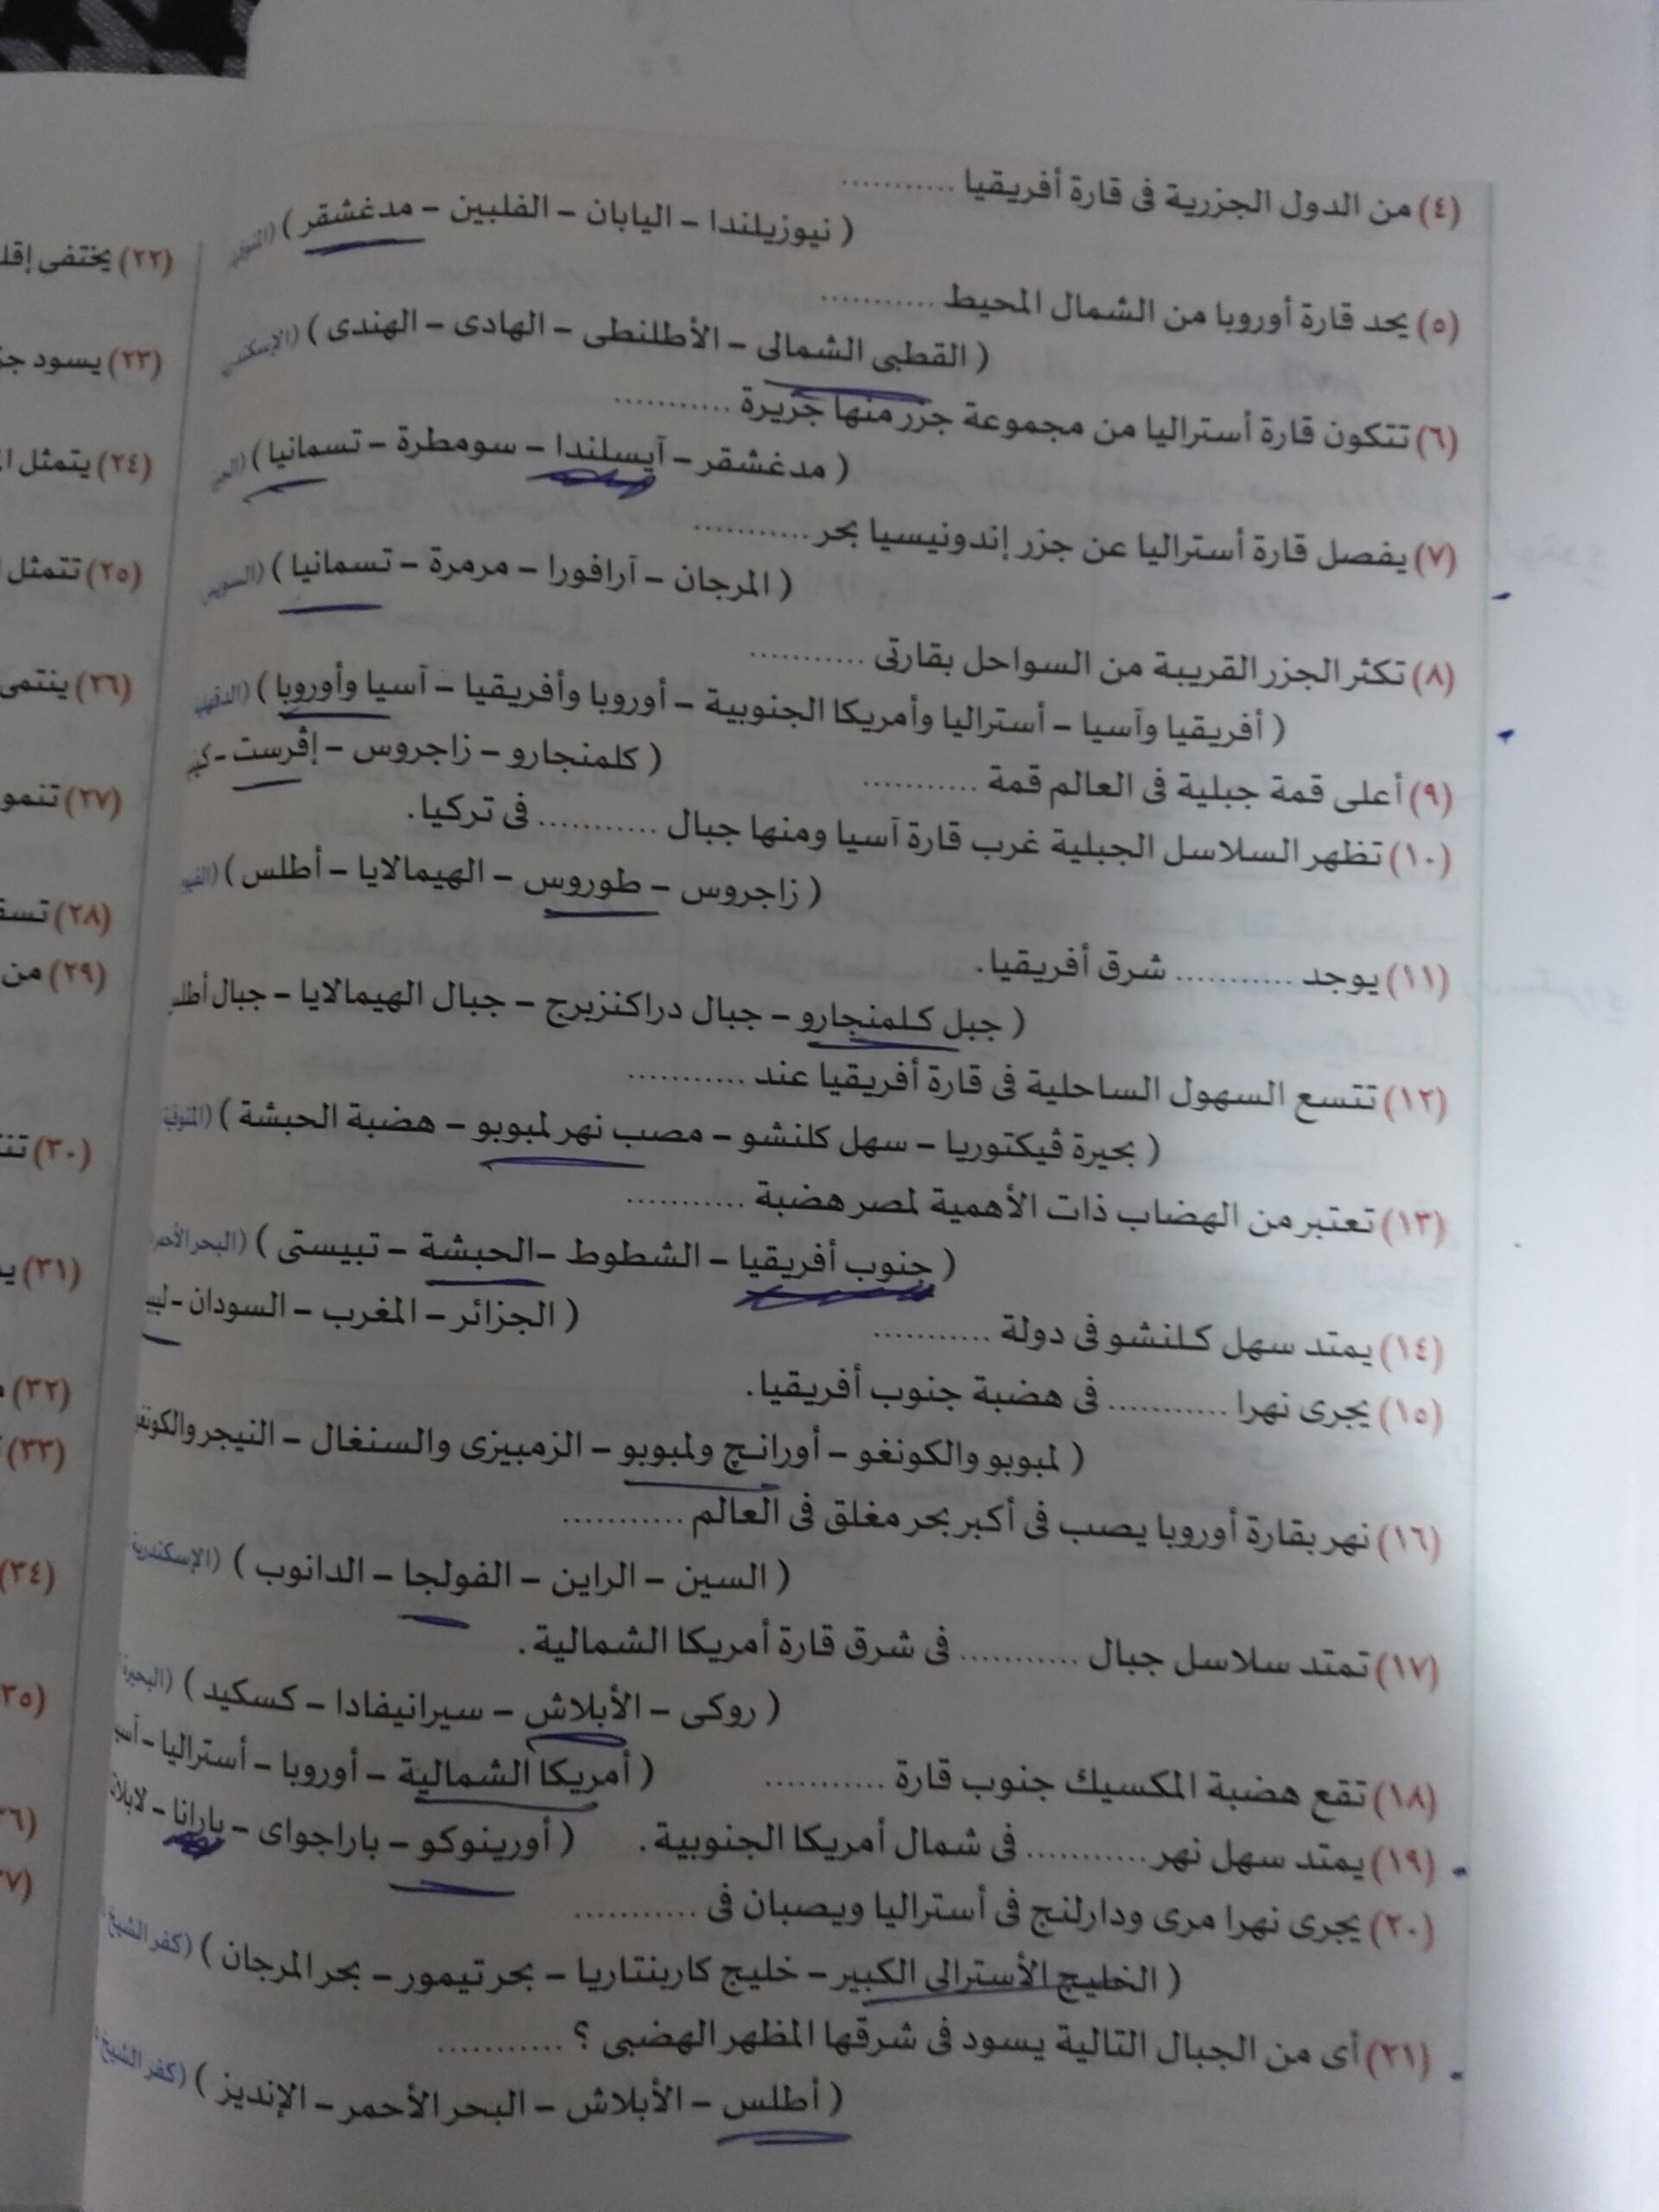 (٤) من الدول الجزرية فى قارة أفريقيا ...........
( نيوزيلندا – اليابان – الفلبين – مدغشقر )
(٥) يحد قارة أوروبا من الشمال المحيط ...........
( القطبى الشمالى – الأطلنطى – الهادى – الهندى )
(٦) تتكون قارة أستراليا من مجموعة جزر منها جزيرة ...........
( مدغشقر – آيسلندا – سومطرة – تسمانيا )
(٧) يفصل قارة أستراليا عن جزر إندونيسيا بحر ...........
( المرجان – آرافورا – مرمرة – تسمانيا ) (السويس
(٨) تكثر الجزر القريبة من السواحل بقارتى ...........
( أفريقيا وآسيا – أستراليا وأمريكا الجنوبية – أوروبا وأفريقيا – آسيا وأوروبا )
(٩) أعلى قمة جبلية فى العالم قمة ........... ( كلمنجارو – زاجروس – إڤرست -
(١٠) تظهر السلاسل الجبلية غرب قارة آسيا ومنها جبال ........... فى تركيا.
( زاجروس – طوروس – الهيمالايا – أطلس )
(١١) يوجد ........... شرق أفريقيا.
( جبل كلمنجارو – جبال دراكنزبرج – جبال الهيمالايا – جبال
(١٢) تتسع السهول الساحلية فى قارة أفريقيا عند ...........
( بحيرة ڤيكتوريا – سهل كلنشو – مصب نهر لمبوبو – هضبة الحبشة ) (المنوفية
(١٣) تعتبر من الهضاب ذات الأهمية لمصر هضبة ...........
( جنوب أفريقيا – الشطوط – الحبشة – تبيستى ) (البحر الأحمر
(١٤) يمتد سهل كلنشو فى دولة ........... ( الجزائر – المغرب – السودان -
(١٥) يجرى نهرا ........... فى هضبة جنوب أفريقيا.
( لمبوبو والكونغو – أورانچ ولمبوبو – الزمبيزى والسنغال – النيجر
(١٦) نهر بقارة أوروبا يصب فى أكبر بحر مغلق فى العالم ...........
( السين – الراين – الفولجا – الدانوب ) (الإسكندرية
(١٧) تمتد سلاسل جبال ........... فى شرق قارة أمريكا الشمالية.
( روكى – الأبلاش – سيرانيفادا – كسكيد ) (البحيرة
(١٨) تقع هضبة المكسيك جنوب قارة ........... ( أمريكا الشمالية – أوروبا – أستراليا -
(١٩) يمتد سهل نهر ........... فى شمال أمريكا الجنوبية. ( أورينوكو – باراجواى – بارانا -
(٢٠) يجرى نهرا مرى ودارلنج فى أستراليا ويصبان فى ...........
( الخليج الأسترالى الكبير – خليج كاربنتاريا – بحر تيمور – بحر المرجان ) (كفر الشيخ
(٢١) أى من الجبال التالية يسود فى شرقها المظهر الهضبى ؟ ...........
( أطلس – الأبلاش – البحر الأحمر – الإنديز ) (كفر الشيخ
(٢٢) يختفى
(٢٣) يسود
(٢٤) يتمثل
(٢٥) تتمثل
(٢٦) ينتمى
(٢٧) تنمو
(٢٨)
(٢٩) من
(٣٠)
(٣١)
(٣٢)
(٣٣)
(٣٤)